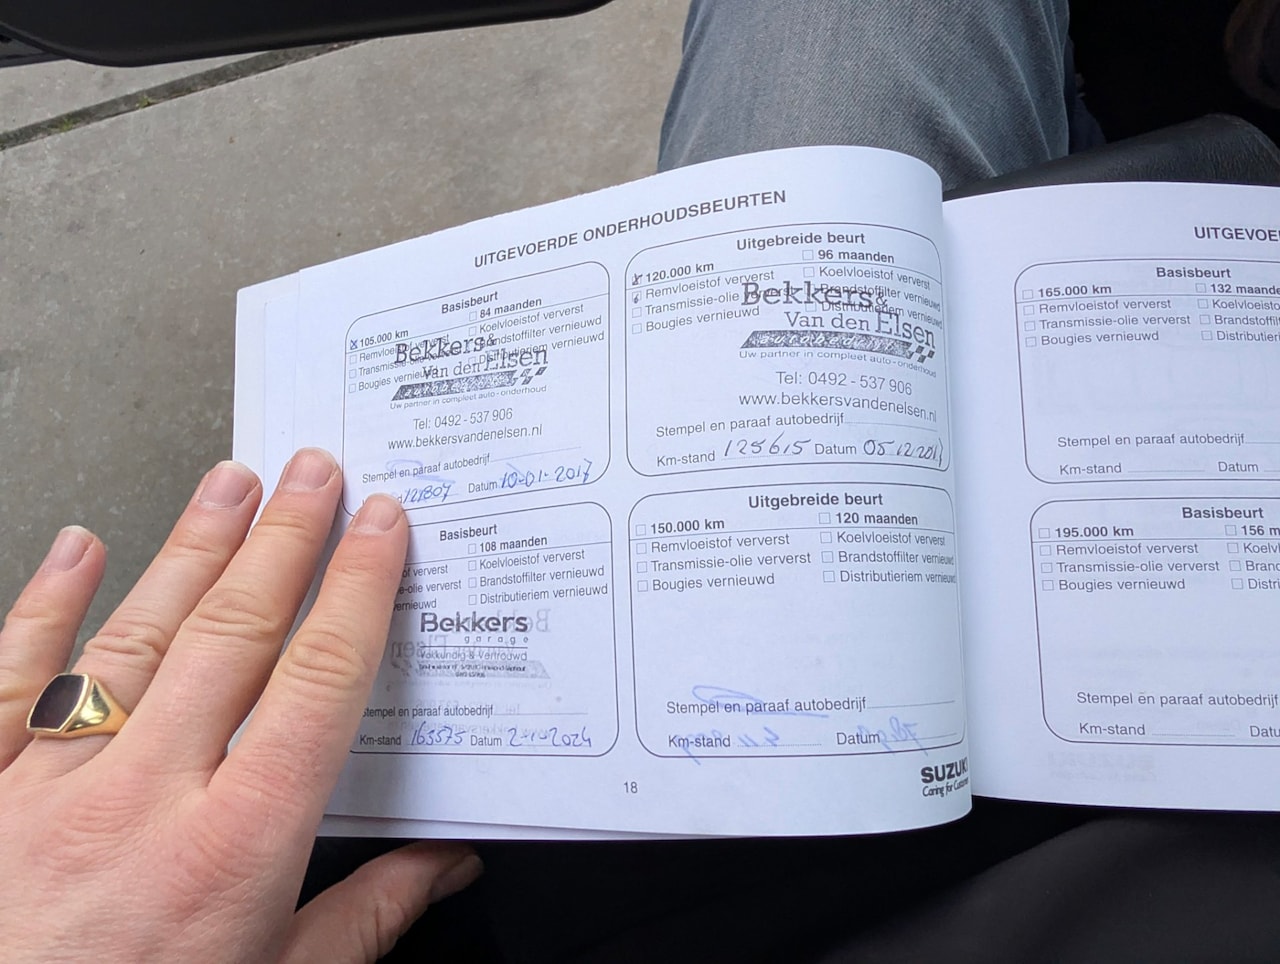 UITGEVOERDE ONDERHOUDSBEURTEN
Basisbeurt
105.000 km
84 maanden
Koelvloeistof ververst
Bougies
Distributieriem vernieuwd
Bekkers &
Van den Elsen
autobedrijf
Uw partner in compleet auto-onderhoud
Tel: 0492 - 537 906
www.bekkersvandenelsen.nl
Stempel en paraaf autobedrijf
121807 Datum 10-01-2017
Uitgebreide beurt
120.000 km
96 maanden
Remvloeistof ververst
Koelvloeistof ververst
Transmissie-olie ververst
Brandstoffilter vernieuwd
Bougies vernieuwd
Distributieriem vernieuwd
Bekkers &
Van den Elsen
autobedrijf
Uw partner in compleet auto-onderhoud
Tel: 0492 - 537 906
www.bekkersvandenelsen.nl
Stempel en paraaf autobedrijf
Km-stand 125615 Datum 05 12 2017
Basisbeurt
108 maanden
ververst
Koelvloeistof ververst
ververst
Brandstoffilter vernieuwd
vernieuwd
Distributieriem vernieuwd
Bekkers
garage
Vakkundig & Vertrouwd
Stempel en paraaf autobedrijf
Km-stand 163575 Datum 2024
Uitgebreide beurt
150.000 km
120 maanden
Remvloeistof ververst
Koelvloeistof ververst
Transmissie-olie ververst
Brandstoffilter vernieuwd
Bougies vernieuwd
Distributieriem vernieuwd
Stempel en paraaf autobedrijf
Km-stand
Datum
18
SUZUKI
Caring for
UITGEVOE
Basisbeurt
165.000 km
132 maande
Remvloeistof ververst
Koelvloeisto
Transmissie-olie ververst
Brandstoff
Bougies vernieuwd
Distributier
Stempel en paraaf autobedrijf
Km-stand
Datum
Basisbeurt
195.000 km
156 m
Remvloeistof ververst
Koelv
Transmissie-olie ververst
Bran
Bougies vernieuwd
Distri
Stempel en paraaf autobedrijf
Km-stand
Datu